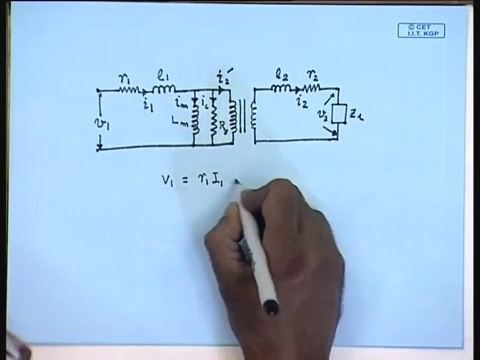 © CET
I.I.T. KGP
r₁ l₁ i₂′ l₂ r₂
i₁ iₘ i꜀ i₂
v₁ Lₘ v₂ Z_L
V₁ = r₁ I₁